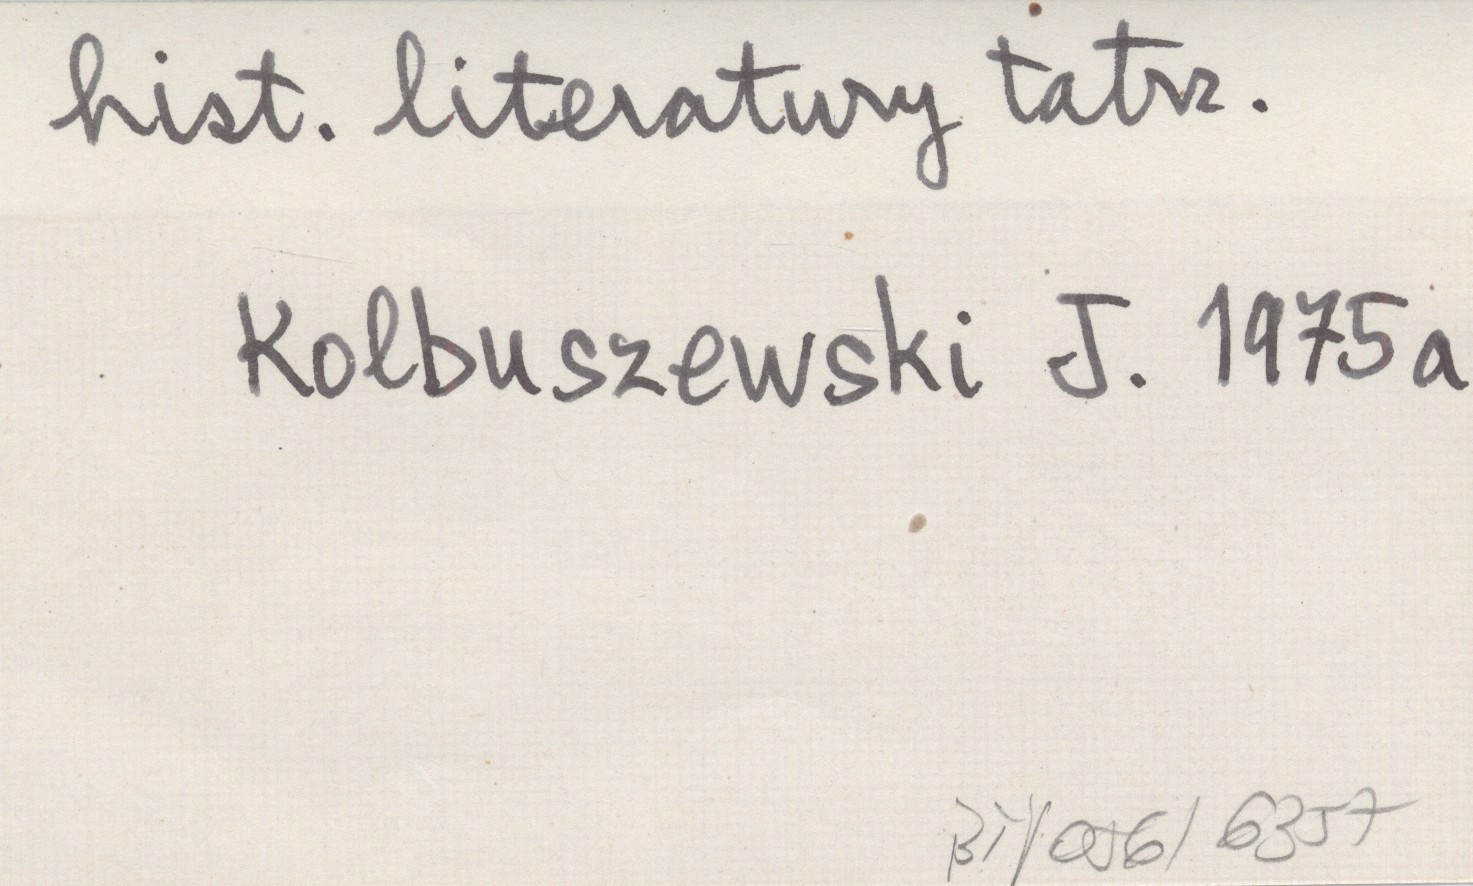 hist. literatury tatrz.
Kolbuszewski J. 1975a
6357